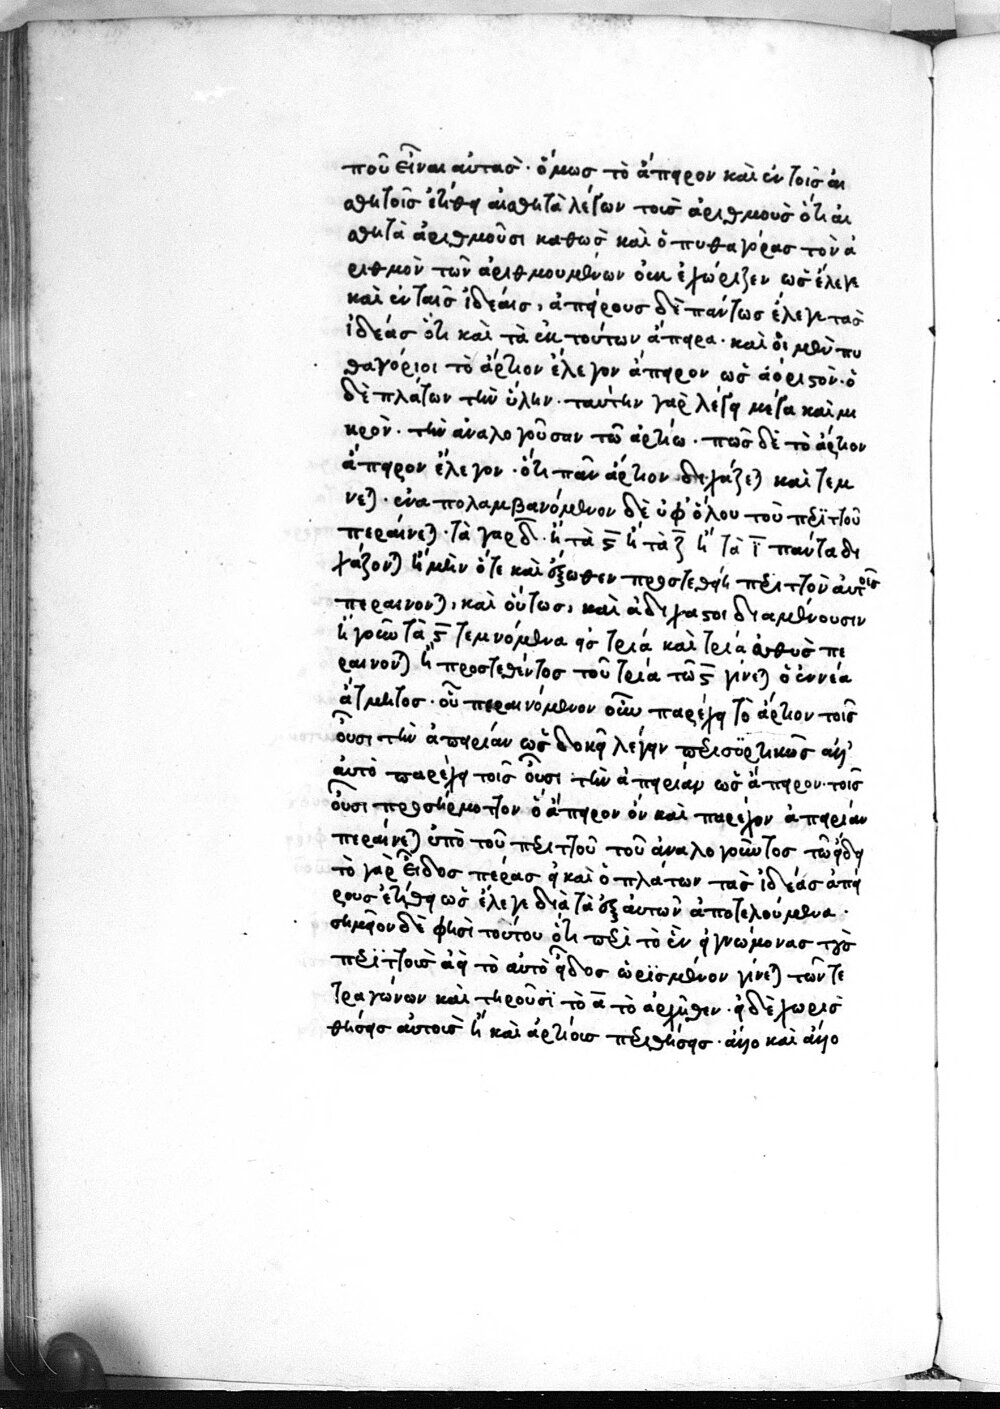 ποῦ εἶναι αὐτάσ· ὅμωσ τὸ ἄπειρον καὶ ἐν τοῖσ αἰ
σθητοῖσ ἐτίθει αἰσθητὰ λέγων τοισ ἀριθμοὺσ ὅτι αἰ
σθητὰ ἀριθμοῦσι καθὼσ καὶ ὁ πυθαγόρασ τὸν ἀ
ριθμὸν τῶν ἀριθμουμένων οὐκ ἐχώριζεν ὡσ ἔλεγε
καὶ ἐν ταῖσ ἰδέαισ, ἀπείρουσ δὲ πάντωσ ἔλεγε τασ
ἰδέασ ὅτι καὶ τὰ ἐκ τούτων ἄπειρα· καὶ οἱ μὲν πυ
θαγόριοι τὸ ἄρτιον ἔλεγον ἄπειρον ὡσ ἀόριστον· ὁ
δὲ πλάτων τὴν ὕλην· ταύτην γαρ λέγει μέγα καὶ μι
κρὸν· τὴν ἀναλογοῦσαν τῶ ἀρτίω· πῶσ δὲ τὸ ἄρτιον
ἄπειρον ἔλεγον· ὅτι πᾶν ἄρτιον διχάζεται καὶ τέμ
νεται· ἐναπολαμβανόμενον δὲ ὑφ' ὅλου τοῦ περιττοῦ
περαίνεται· τὰ γαρ δ̅· ἢ τὰ ϛ̅ ἢ τὰ ζ̅ ἢ τὰ ι̅ πάντα δι
χάζονται ἢ μὴν ὅτε καὶ ἔξωθεν προστεθείη περιττὸν αὐτοῖσ
περαίνονται, καὶ οὕτωσ, καὶ ἀδίχαστοι διαμένουσιν
ἢ γοῦν τὰ ϛ̅ τεμνόμενα εἰσ τρία καὶ τρία εὐθὺσ πε
ραίνονται ἢ προστεθέντοσ τοῦ τρία τῶ ϛ̅ γίνεται ὁ ἐννέα
ἄτμητοσ· οὐ περαινόμενον οὖν παρέχει τὸ ἄρτιον τοῖσ
οὖσι τὴν ἀπειρίαν ὡσ δοκεῖ λέγειν περισσὸρτικῶσ ἀλλ'
αὐτὸ παρέχει τοῖσ οὖσι τὴν ἀπειρίαν ὡσ ἄπειρον· τοῖσ
οὖσι προσήρμοττον ὃ ἄπειρον ὂν καὶ παρέχον ἀπειρίαν
περαίνεται ὑπὸ τοῦ περιττοῦ τοῦ ἀναλογοῦντοσ τῶ εἴδει
τὸ γαρ εἶδοσ πέρασ εἰ καὶ ὁ πλάτων τασ ἰδέασ ἀπεί
ρουσ ἐτίθει ὡσ ἔλεγε διὰ τὰ ἐξ αὐτῶν ἀποτελούμενα·
σημεῖον δὲ φησὶ τούτου ὅτι περὶ τὸ ἓν οἱ γνώμονασ τοὺσ
περιττοῖσ ἀεὶ τὸ αὐτὸ εἶδοσ ὡρισμένον γίνεται τῶν τε
τραγώνων καὶ τηροῦσι τὸ α̅ τὸ ἀρχῆθεν· εἰ δὲ χωρισ
θήσεισ αὐτοῖσ ἢ καὶ ἀρτίοισ περιθήσεισ· ἄλλο καὶ ἄλλο